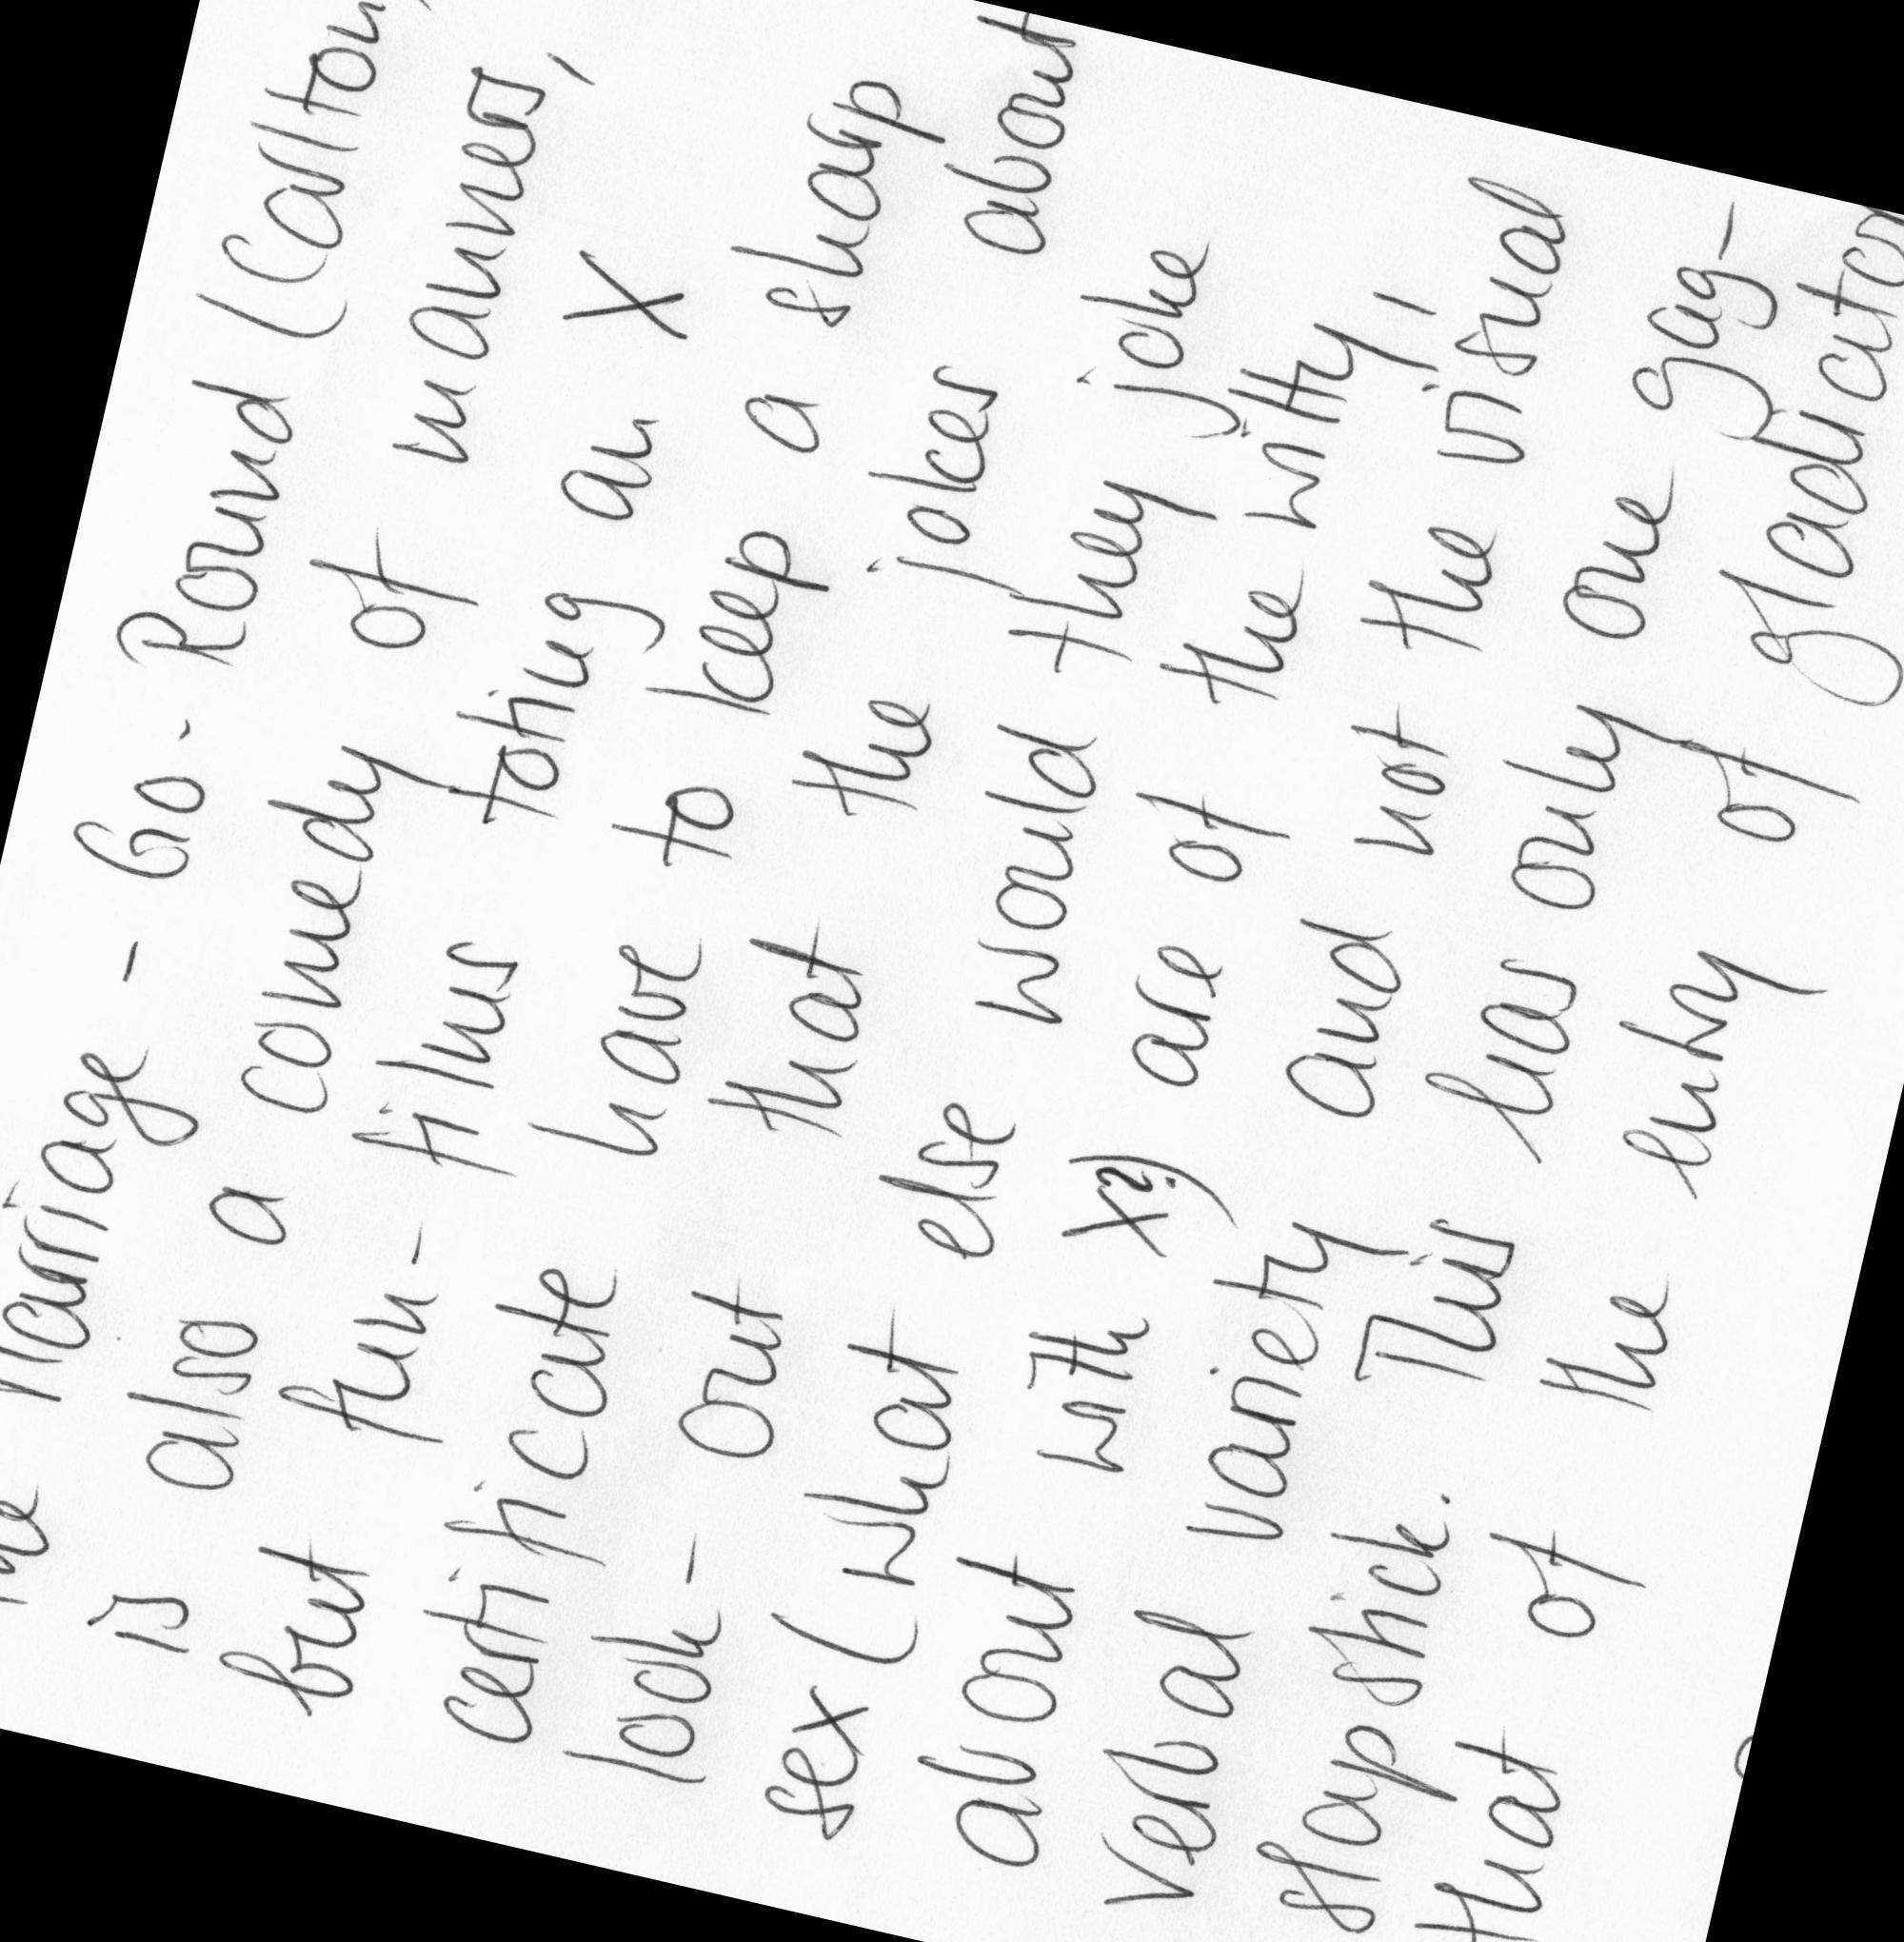 The Marriage - Go - Round (Carlton,
is also a comedy of manners,
but fun - films toting an X
certificate have to keep a sharp
look - out that the jokes about
sex (what else would they joke
about with X?) are of the witty,
verbal variety and not the visual
slapstick. This has only one gag -
that of the entry of gladiator